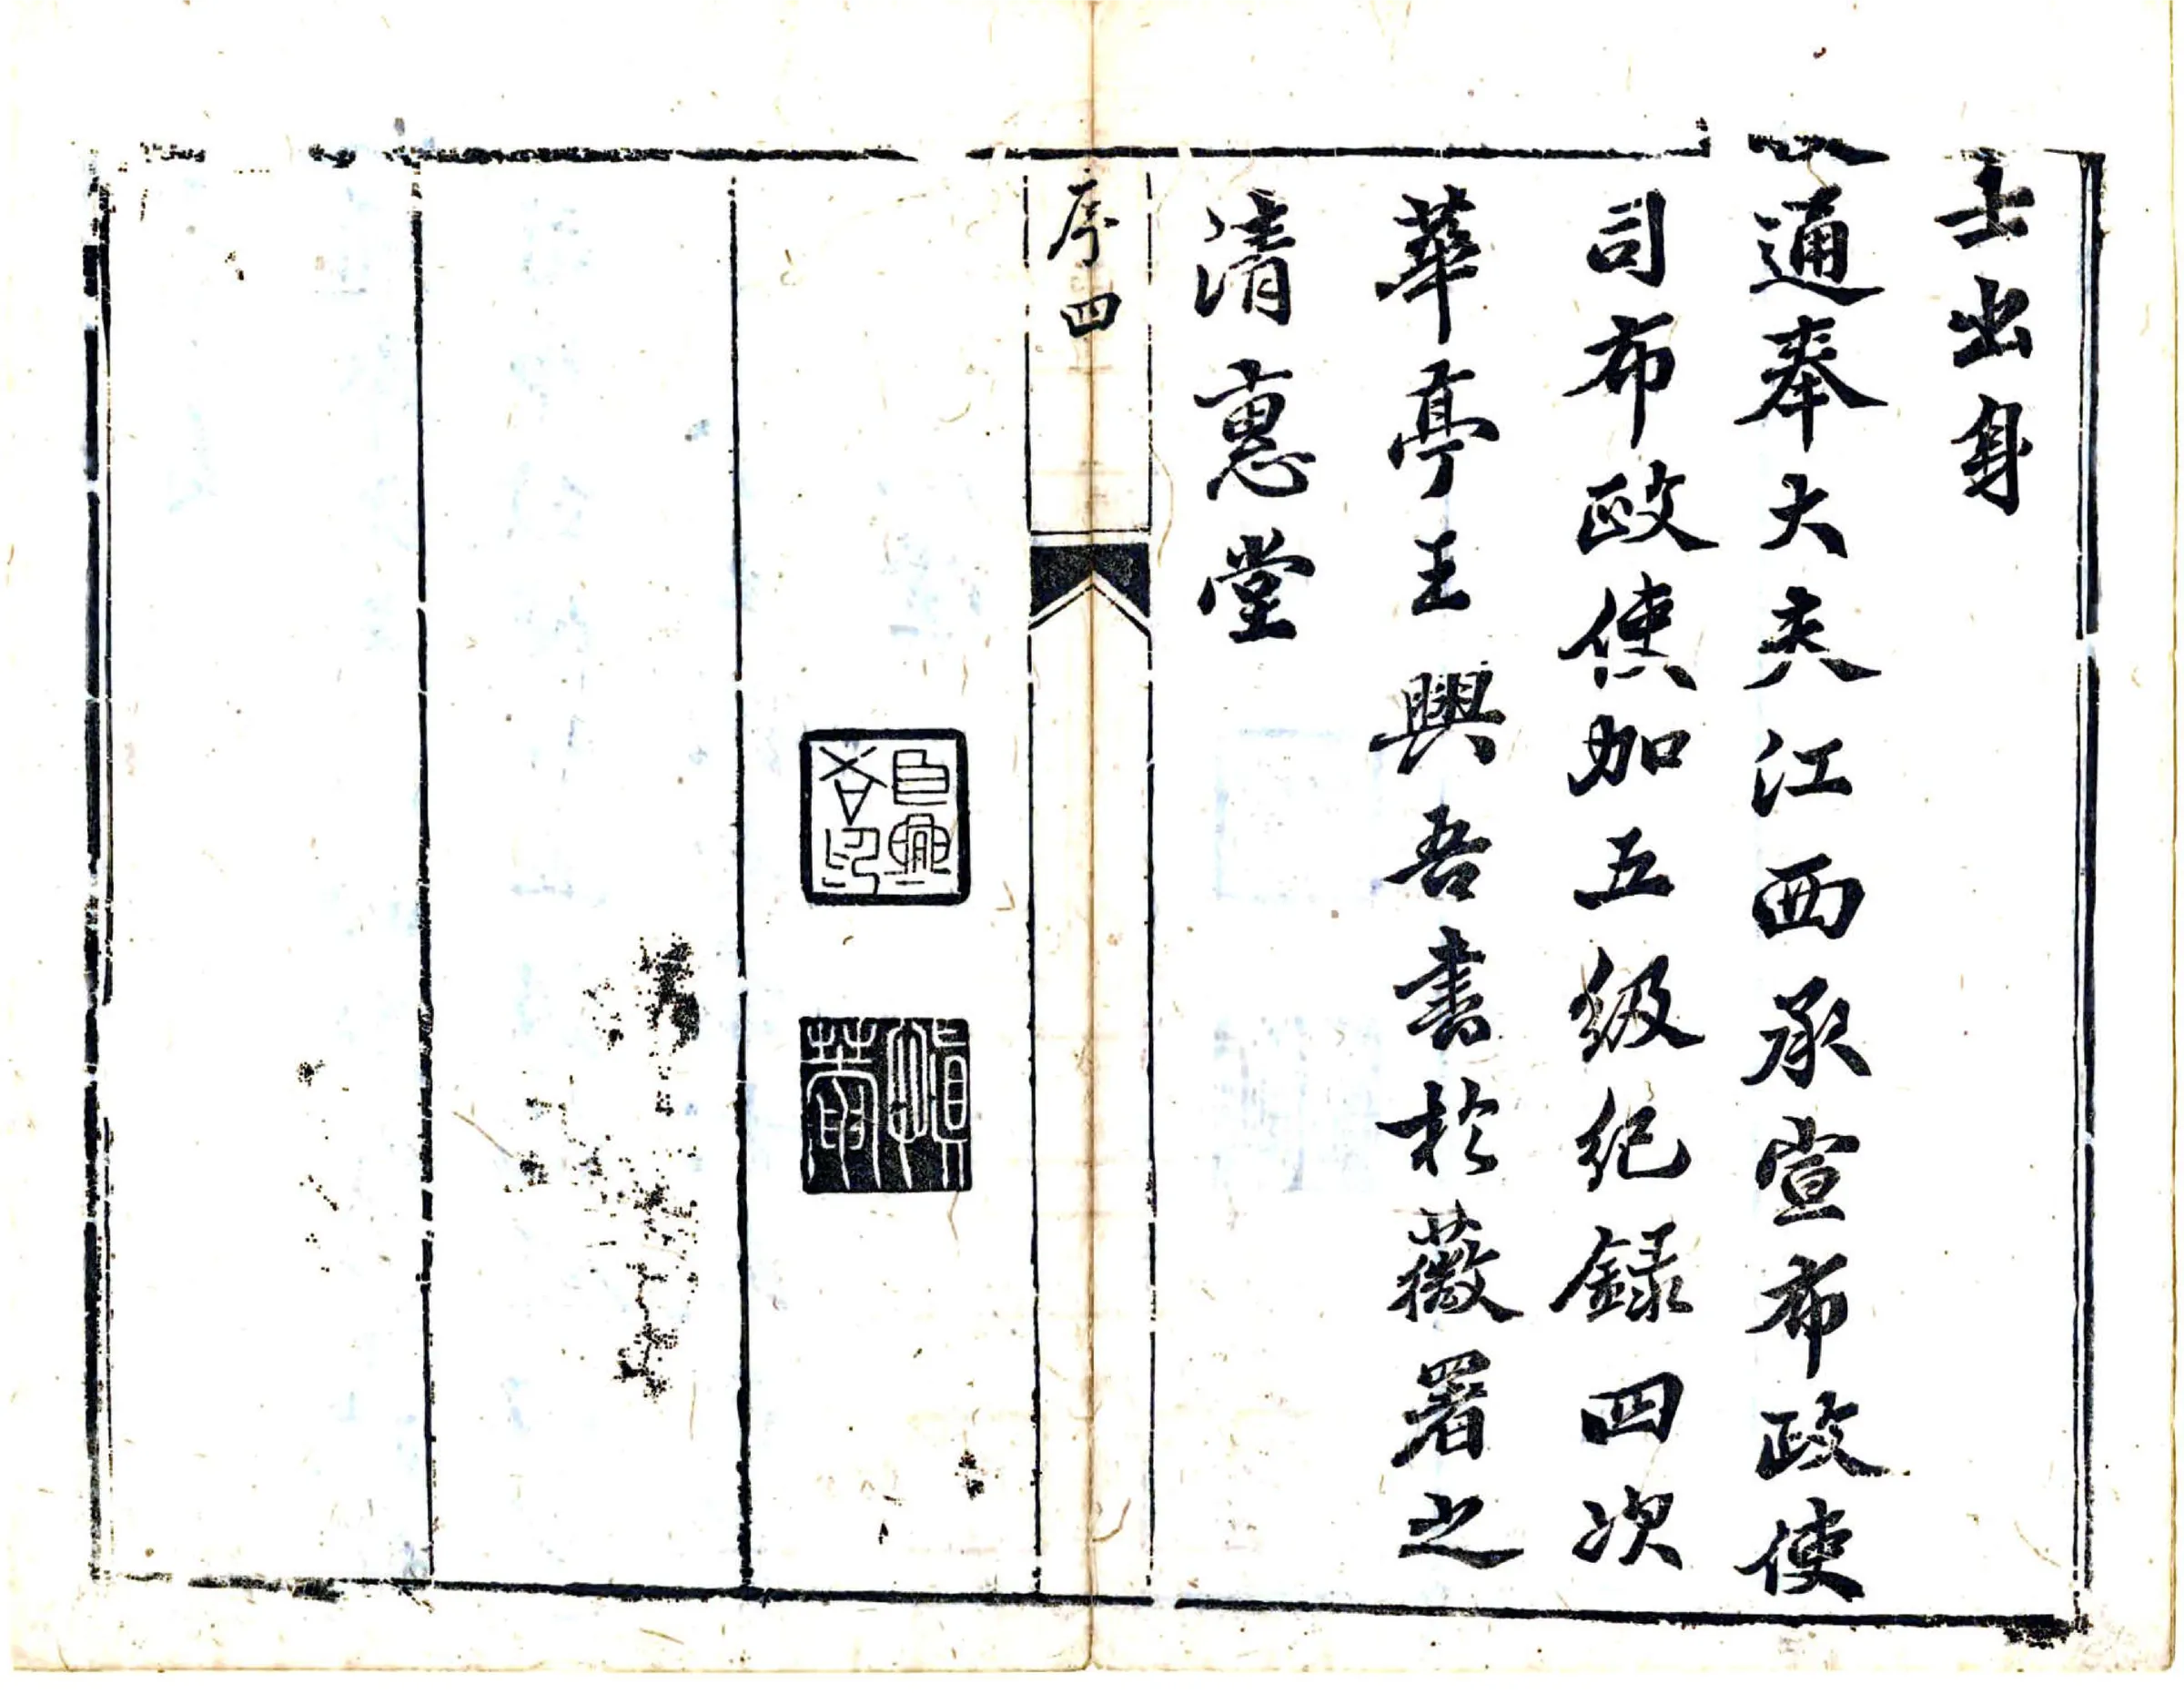 士出身
通奉大夫江西承宣布政使
司布政使加五級紀錄四次
華亭王興吾書於薇署之
清惠堂
序四
臣興吾印